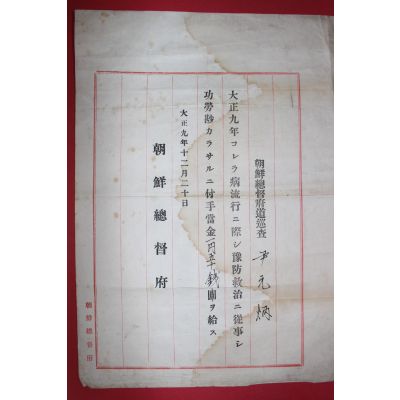 朝鮮總督府道巡査 尹元炳
大正九年コレラ病流行ニ際シ豫防救治ニ從事シ
功勞尠カラサルニ付手當金一円五十錢ヲ給ス
大正九年十二月二十日
朝鮮總督府
朝鮮總督府